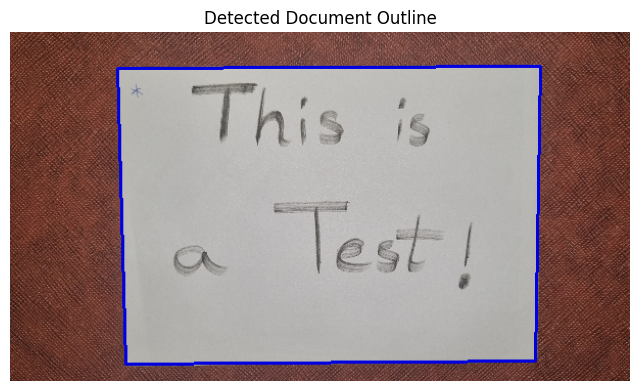 Detected Document Outline
* This is
a Test!